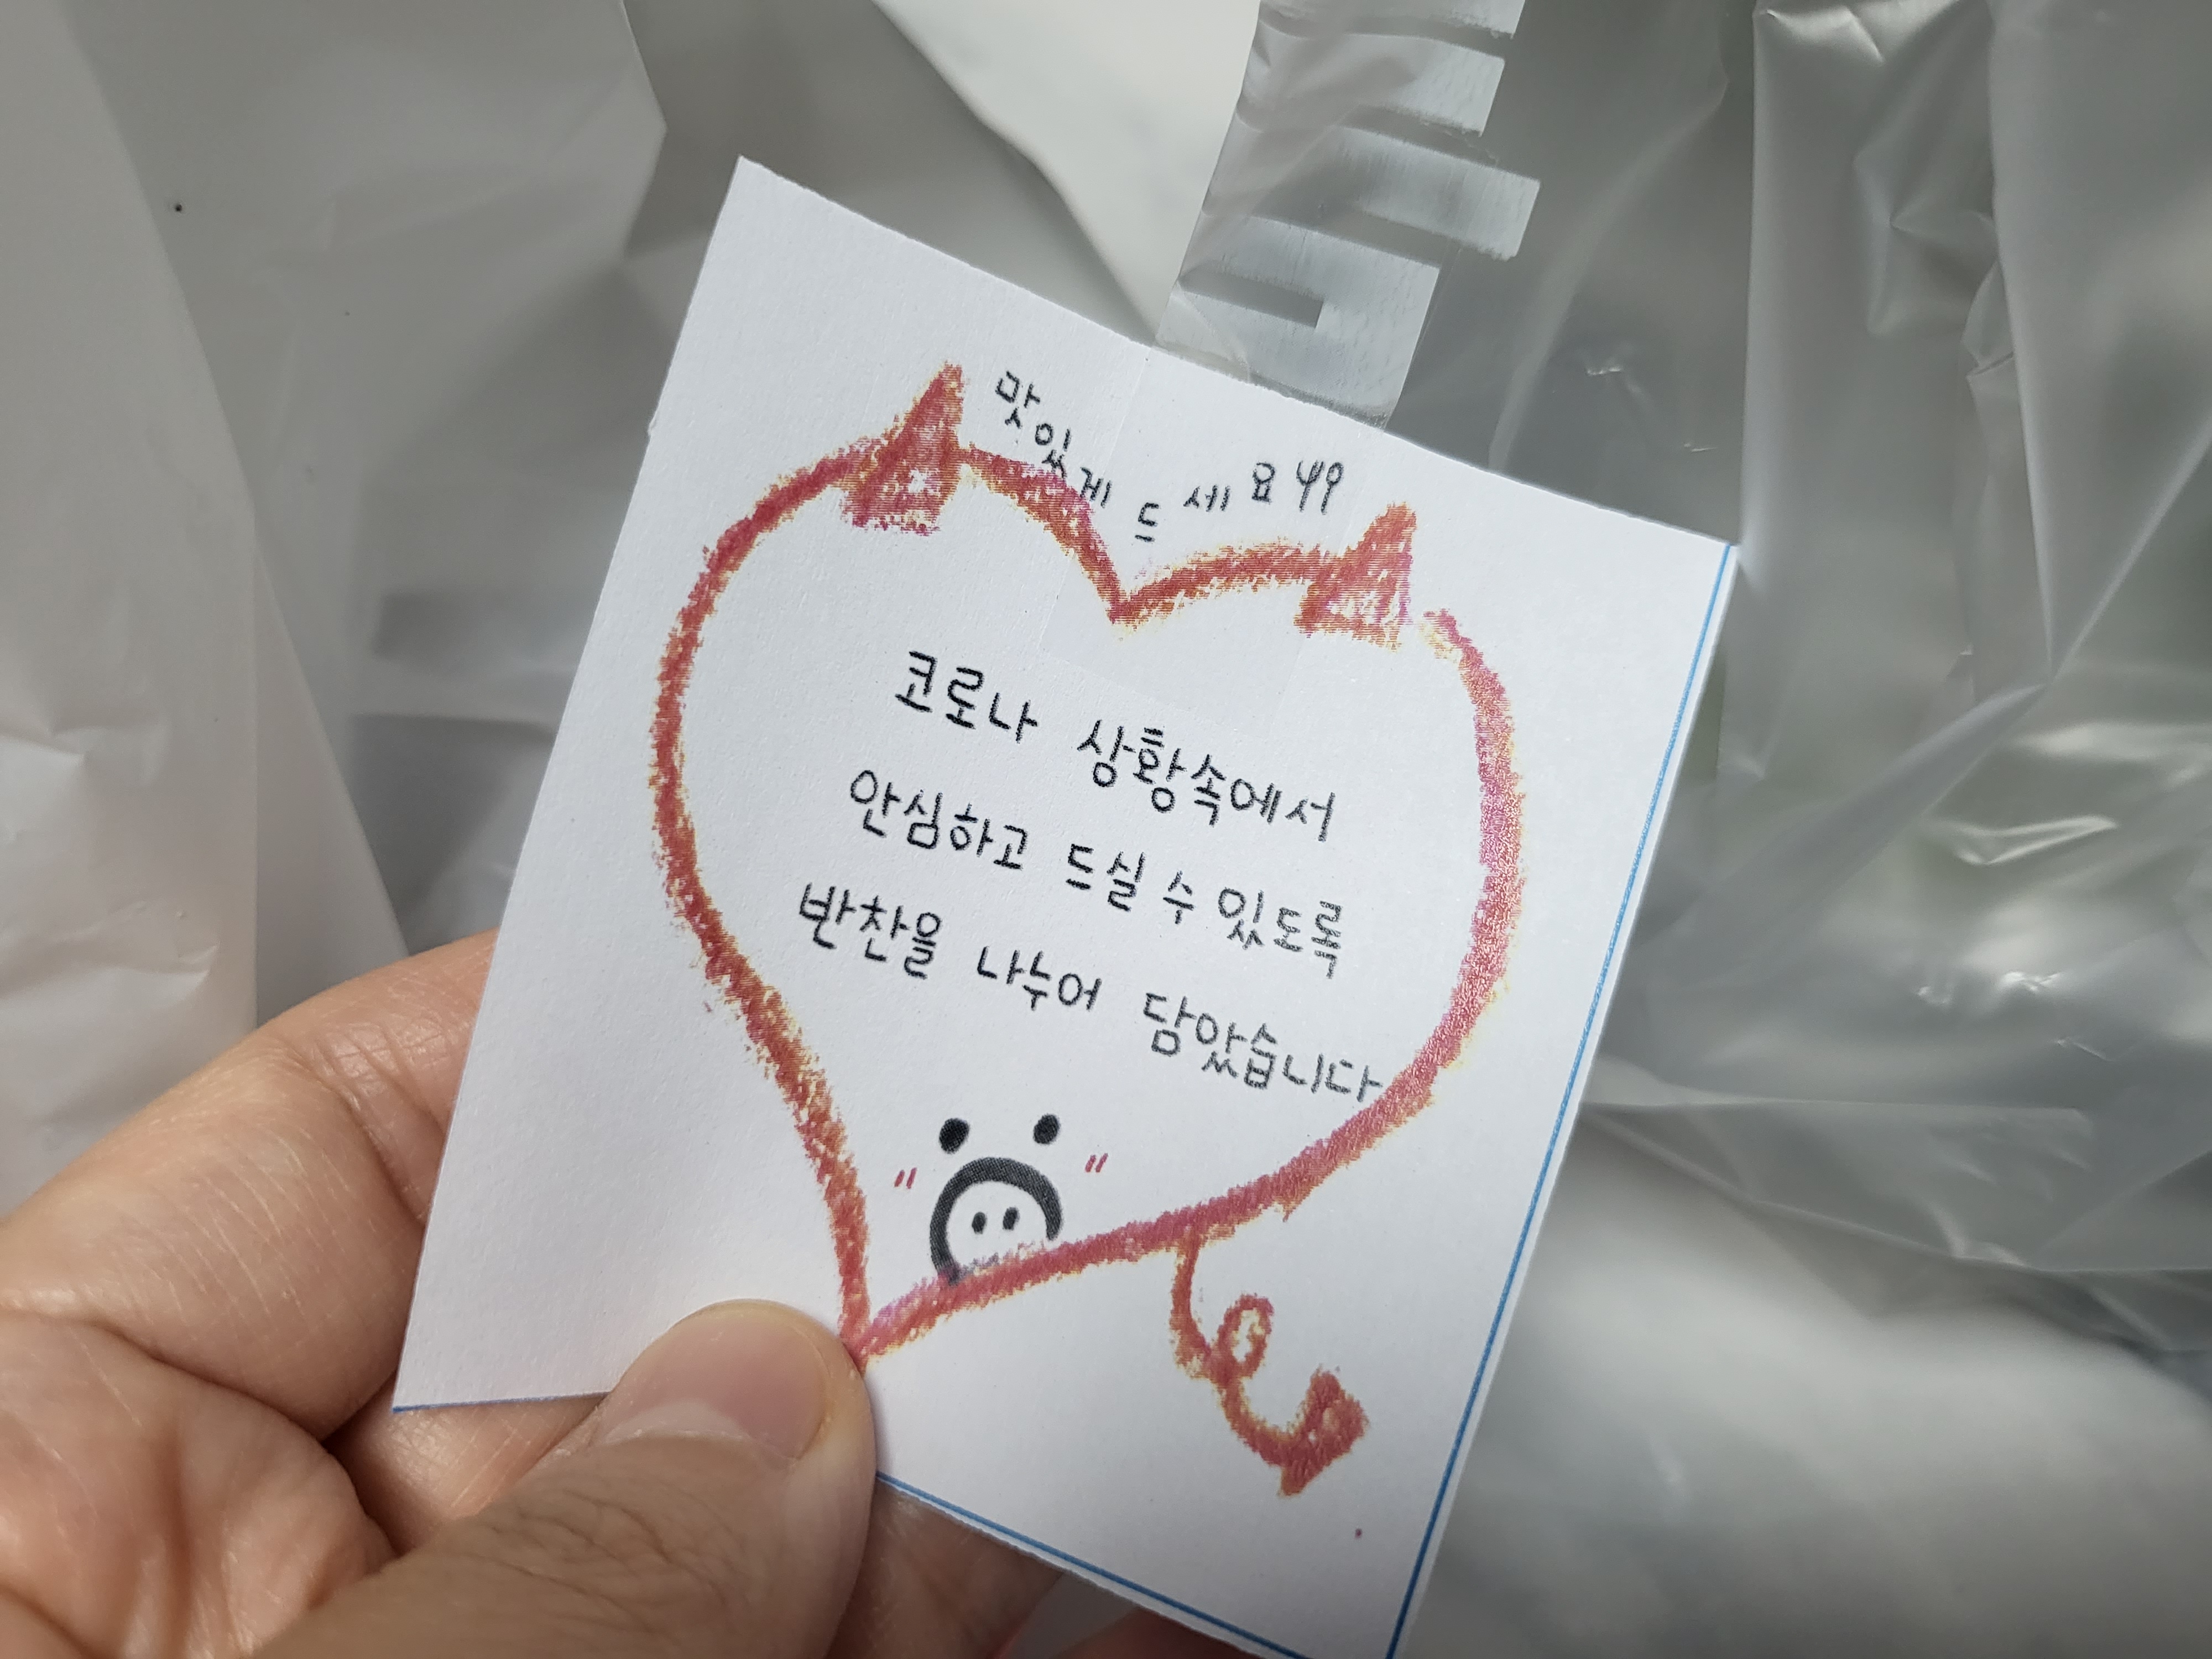 맛있게 드세요
코로나 상황속에서
안심하고 드실 수 있도록
반찬을 나누어 담았습니다